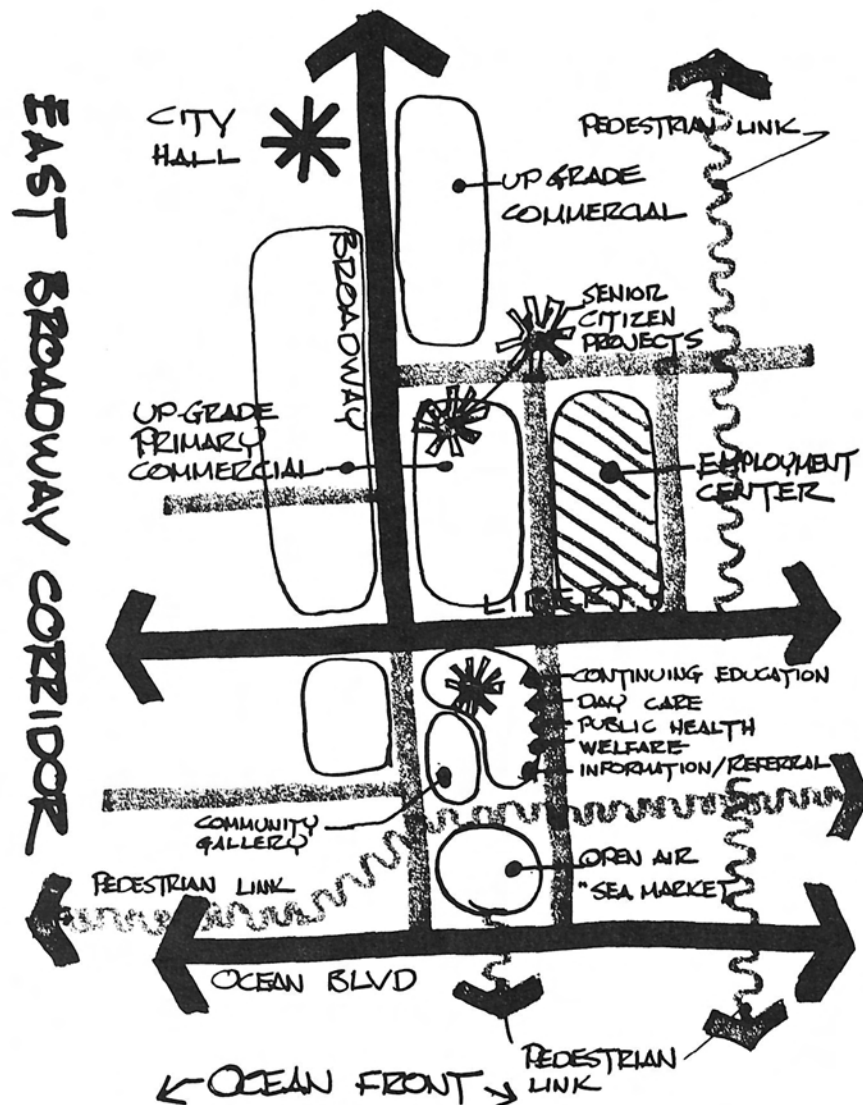 EAST BROADWAY CORRIDOR
CITY
HALL
PEDESTRIAN LINK
UP-GRADE
COMMERCIAL
BROADWAY
SENIOR
CITIZEN
PROJECTS
UP-GRADE
PRIMARY
COMMERCIAL
EMPLOYMENT
CENTER
LIBERTY
CONTINUING EDUCATION
DAY CARE
PUBLIC HEALTH
WELFARE
INFORMATION/REFERRAL
COMMUNITY
GALLERY
OPEN AIR
"SEA MARKET
PEDESTRIAN LINK
OCEAN BLVD
PEDESTRIAN
LINK
OCEAN FRONT